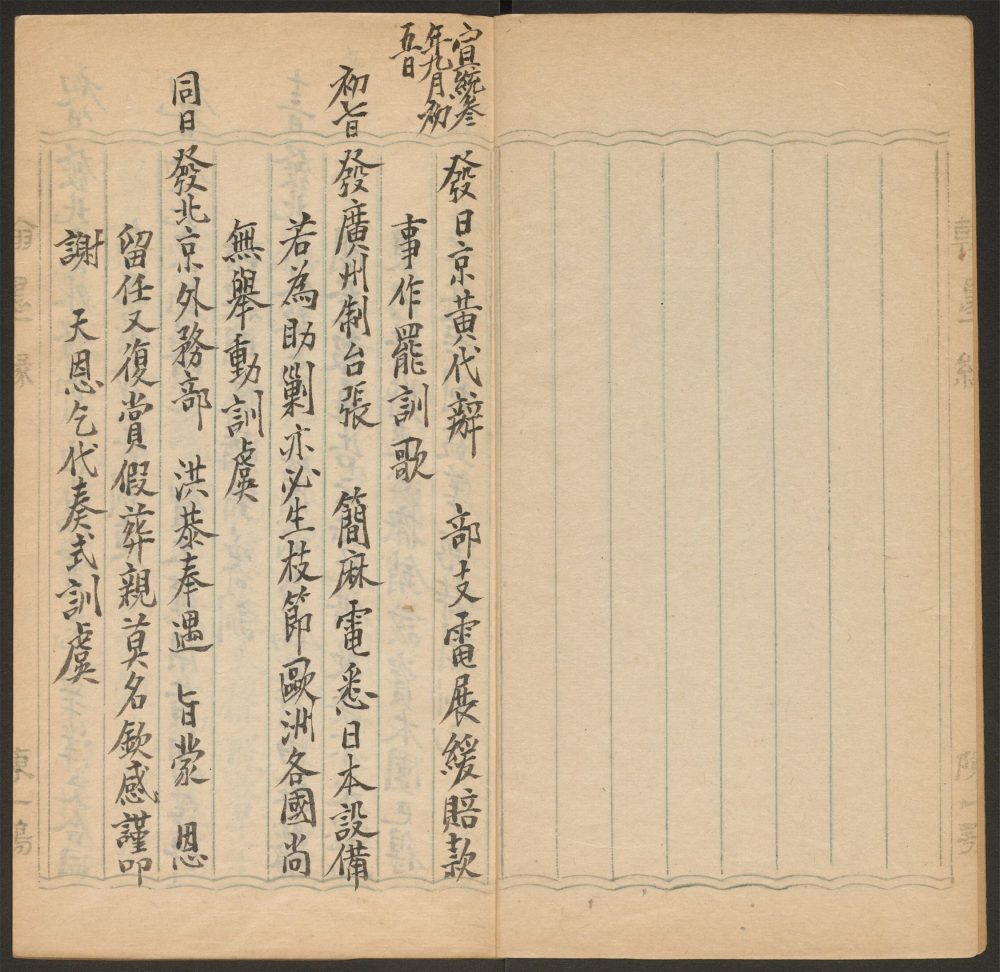 宣統叁
年九月初
五日
發日京黃代辦　部支電展緩賠款
事作罷訓歌
初七日
發廣州制台張　簡麻電悉日本設備
若為助剿亦必生枝節歐洲各國尚
無舉動訓虞
同日
發北京外務部　洪恭奉遇　旨蒙　恩
留任又復賞假葬親莫名欽感謹叩
謝　天恩乞代奏式訓虞